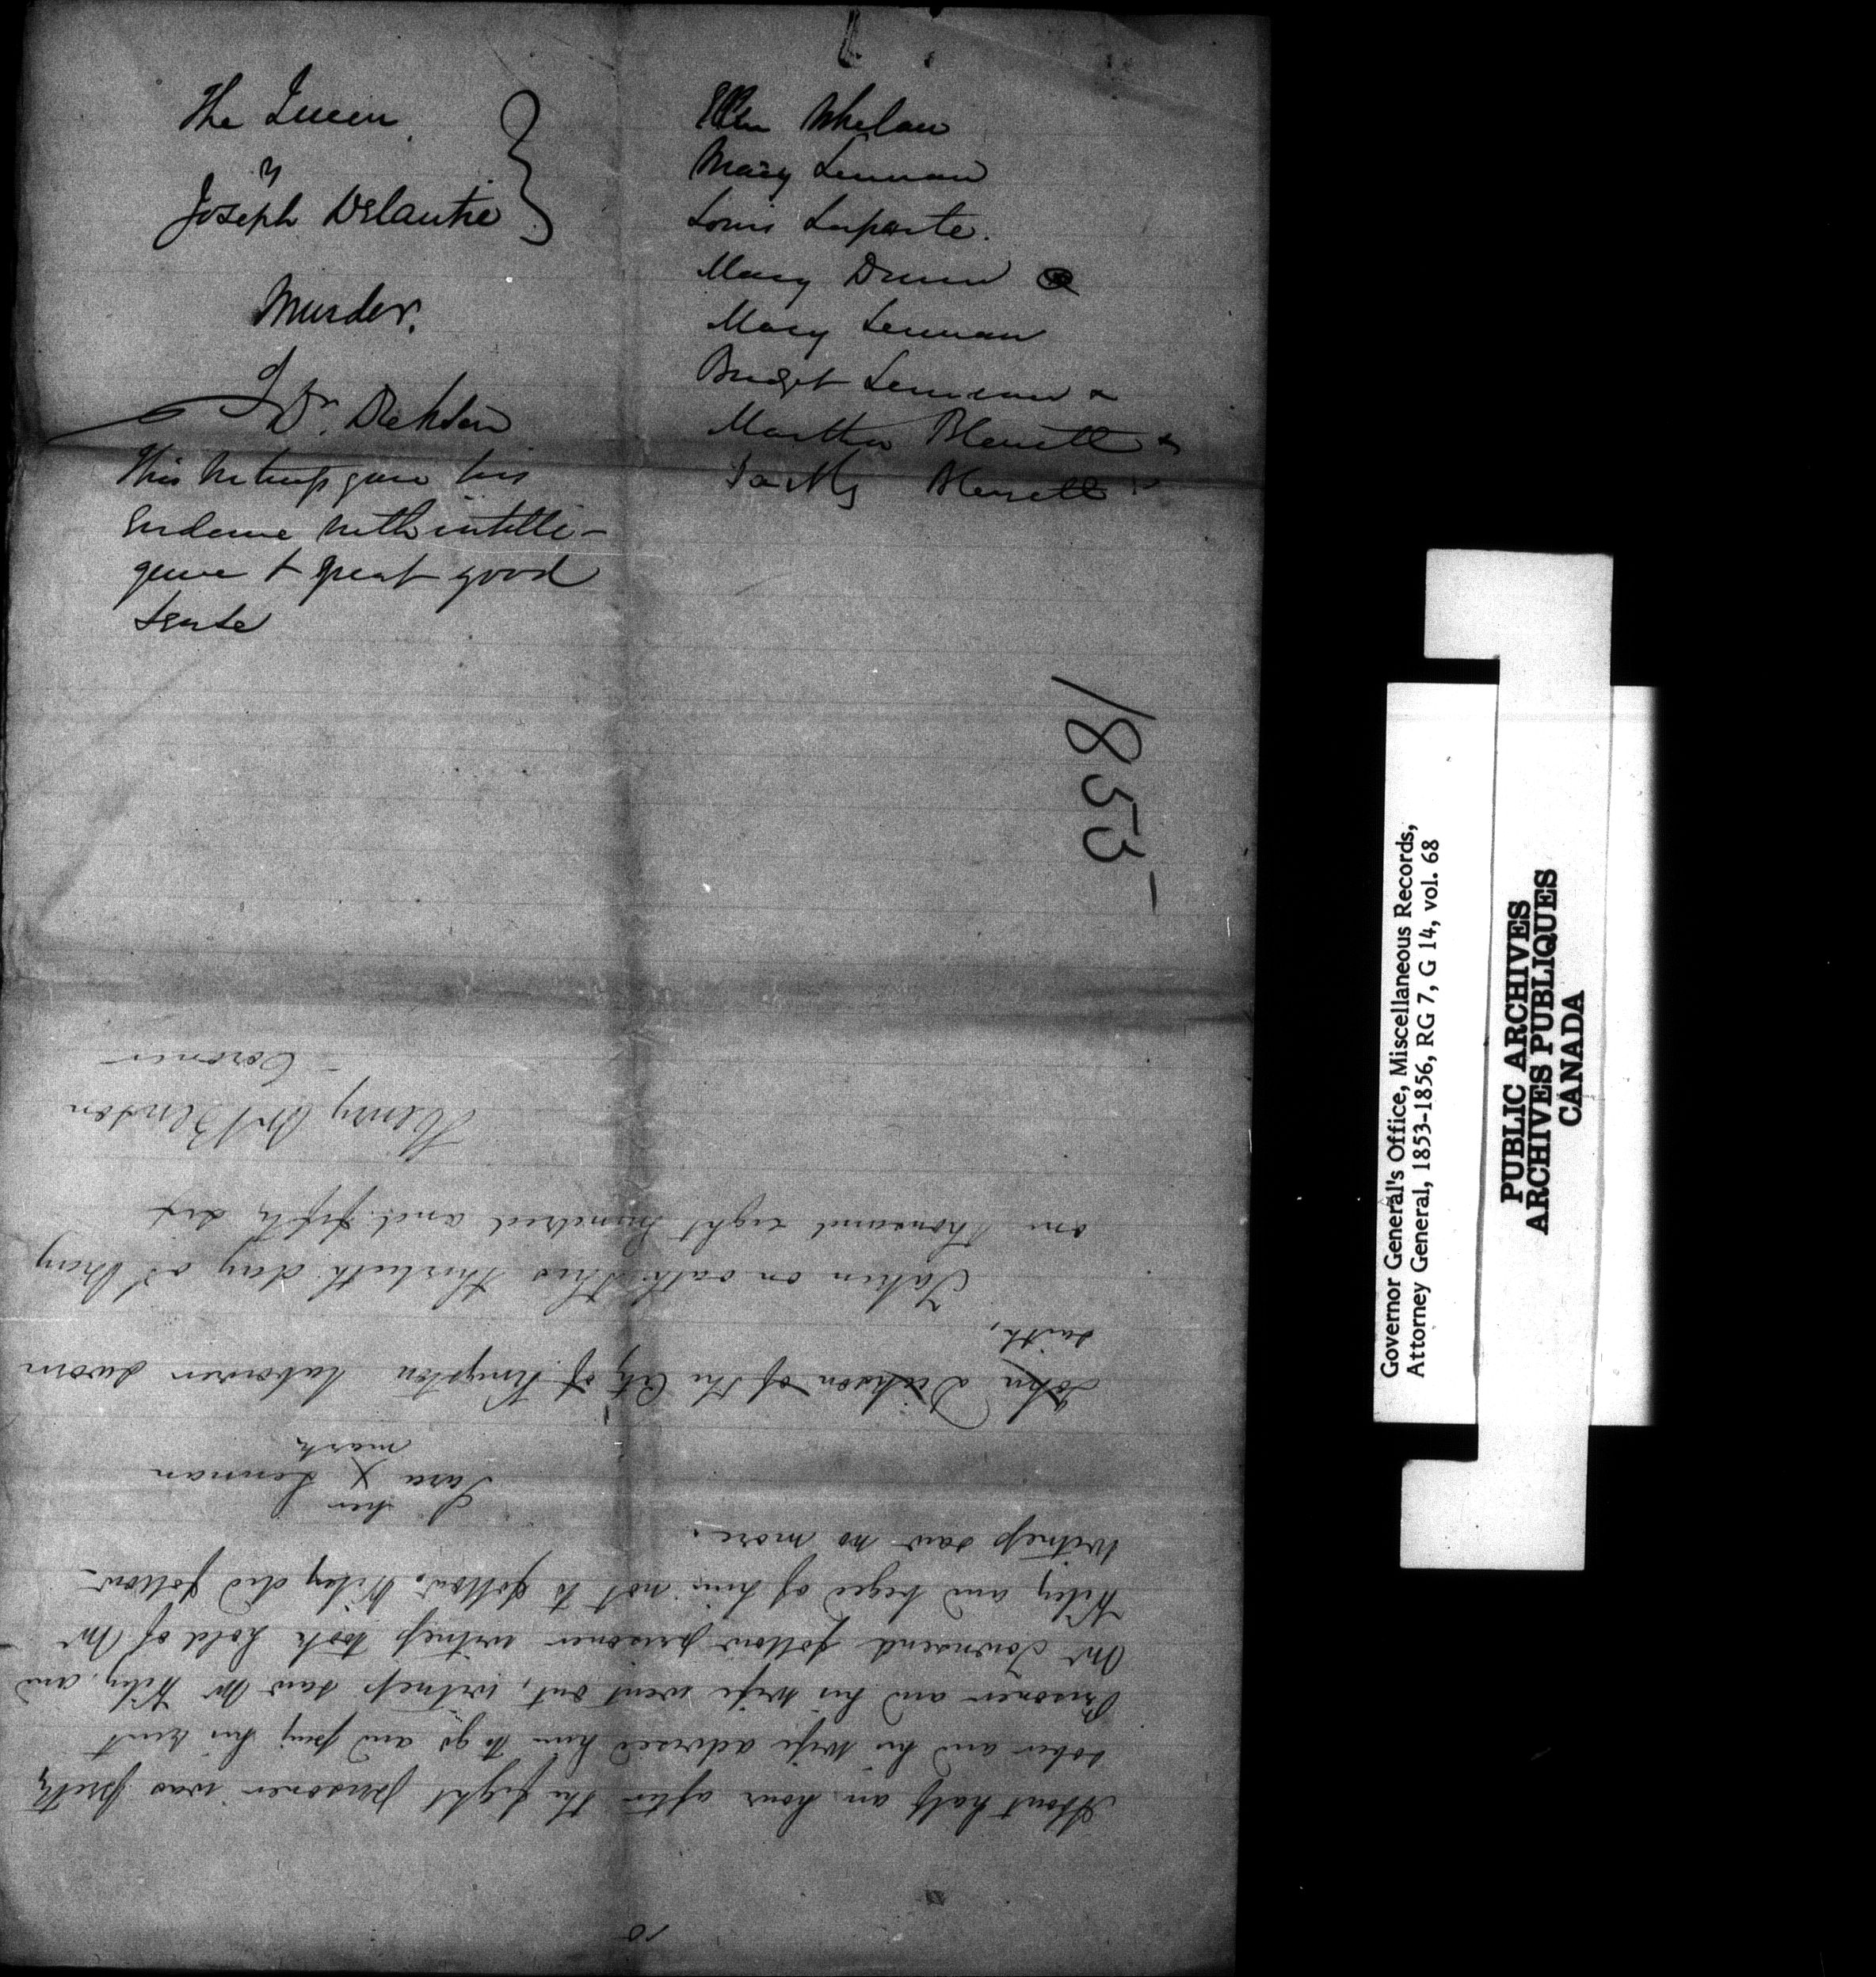 The Queen
v
Joseph Delautie
Murder.
Dr. Dickson
This Witness gave his
Evidence with intelli-
gence & great good
sense
Ellen Whelan
Mary Lennan
Louis Laporte.
Mary Dunn
Mary Lennan
Bridget Lennan
Martha Blewett
Blewett
1855
10
About half an hour after the fight prisoner was pretty
sober and his wife advised him to go and pay his rent
Prisoner and his wife went out, witness saw Mr Wiley, and
Mr Townsend follow prisoner witness took hold of Mr
Wiley and beged of him not to follow. Wiley did follow.
Witness saw no more.
her
Sara X Lennan
mark
John Dickson of the City of Kingston Laborer sworn
saith,
Taken on oath this thirtieth day of May
one thousand eight hundred and fifty six
Henry W Benson
Coroner
Governor General's Office, Miscellaneous Records,
Attorney General, 1853-1856, RG 7, G 14, vol. 68
PUBLIC ARCHIVES
ARCHIVES PUBLIQUES
CANADA